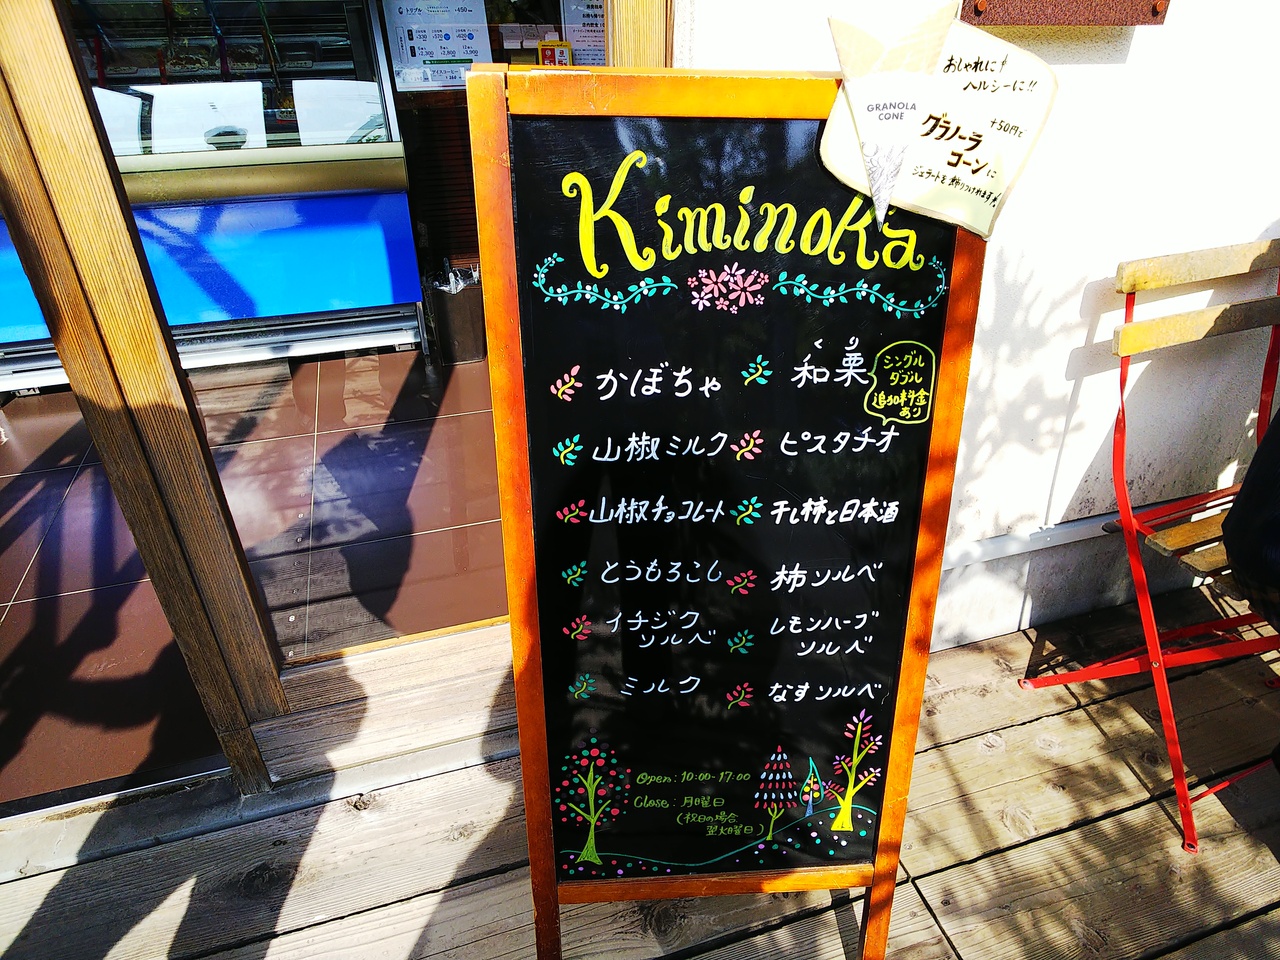 トリプル
¥450
¥330
¥570
¥620
2,300
2,800
3,900
アイスコーヒー
おしゃれに
ヘルシーに!!
GRANOLA
CONE
+50円で
グラノーラ
コーンに
ジェラートを飾りつけれます!
Kiminoka
かぼちゃ
くり
和栗
シングル
ダブル
追加料金
あり
山椒ミルク
ピスタチオ
山椒チョコレート
干し柿と日本酒
とうもろこし
柿ソルベ
イチジク
ソルベ
レモンハーブ
ソルベ
ミルク
なすソルベ
Open:10:00-17:00
Close:月曜日
(祝日の場合
翌火曜日)